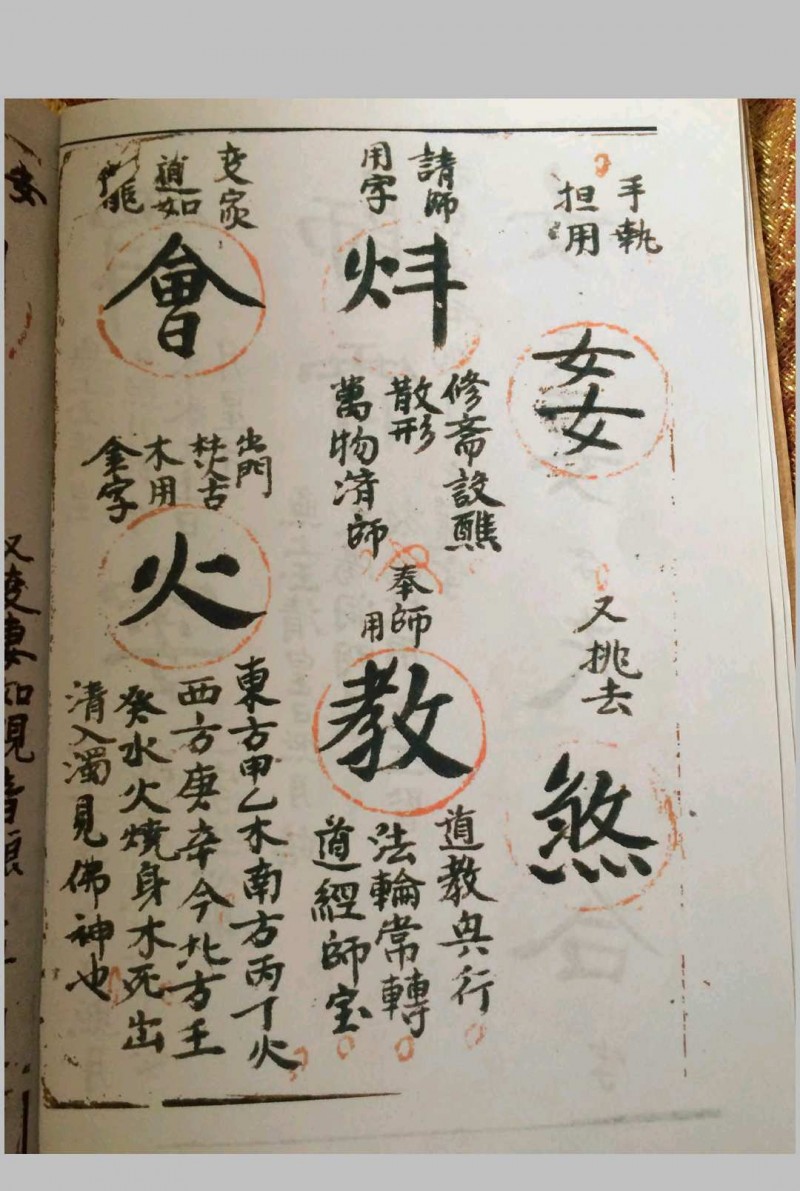 手執
担用
姦
又挑去
煞
請師
用字
炐
修斋設醮
散形
萬物濟師
奉師
用
教
道教興行
法輪常轉
道經師宝
变家
道如
會
出門
木用
金字
火
東方甲乙木南方丙丁火
西方庚辛今北方壬
癸水火燒身木死出
清入濁見佛神也